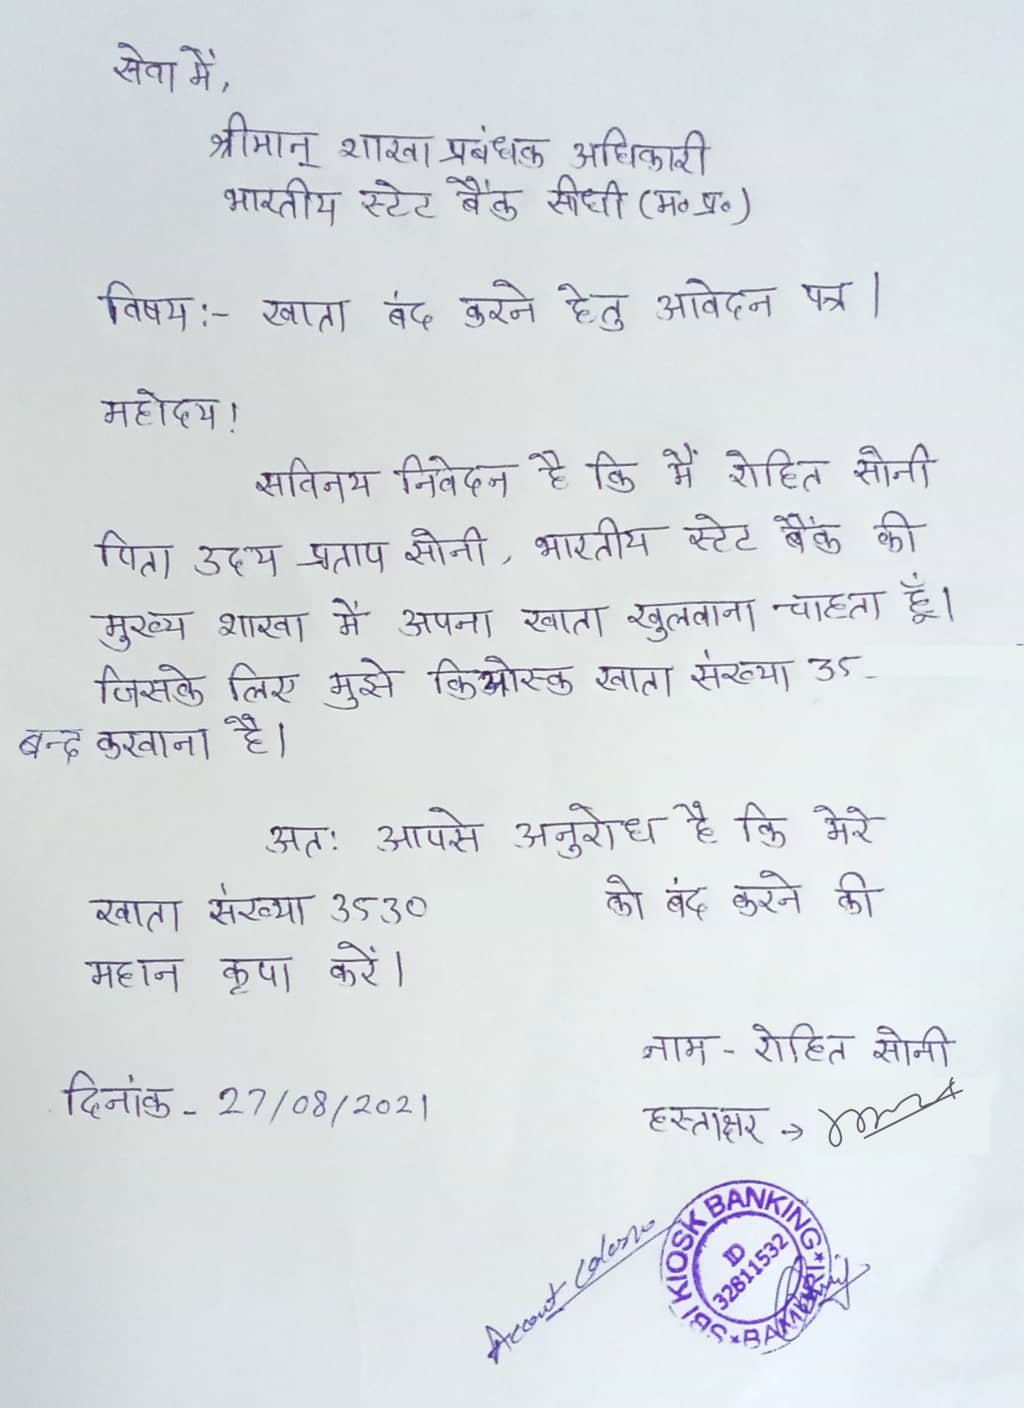 सेवा में,
श्रीमान् शाखा प्रबंधक अधिकारी
भारतीय स्टेट बैंक सीधी (म॰प्र॰)
विषय:- खाता बंद करने हेतु आवेदन पत्र।
महोदय!
सविनय निवेदन है कि मैं रोहित सोनी
पिता उदय प्रताप सोनी, भारतीय स्टेट बैंक की
मुख्य शाखा में अपना खाता खुलवाना चाहता हूँ।
जिसके लिए मुझे किओस्क खाता संख्या 35-
बन्द करवाना है।
अतः आपसे अनुरोध है कि मेरे
खाता संख्या 3530 को बंद करने की
महान कृपा करें।
नाम - रोहित सोनी
दिनांक - 27/08/2021
हस्ताक्षर →
SBI KIOSK BANKING
ID
32811532
Account